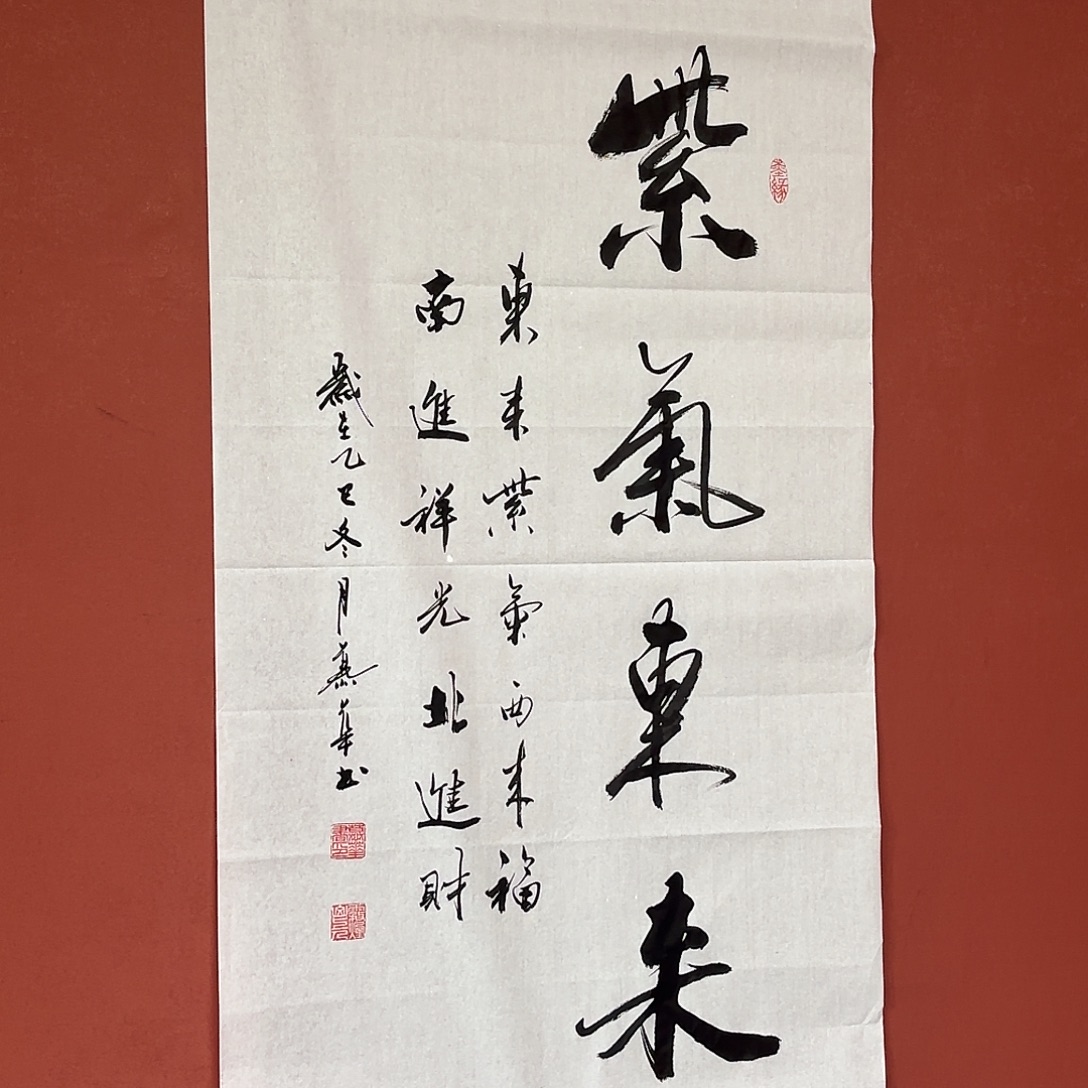 紫氣東来
東来紫氣西来福
南進祥光北進財
歲在乙巳冬月燕华书